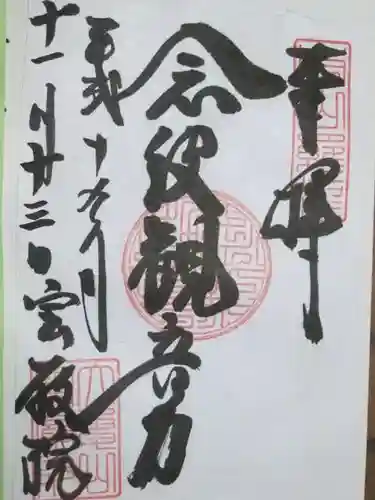 奉拝
念彼観音力
平成十九年
十一月廿三日 宝厳院